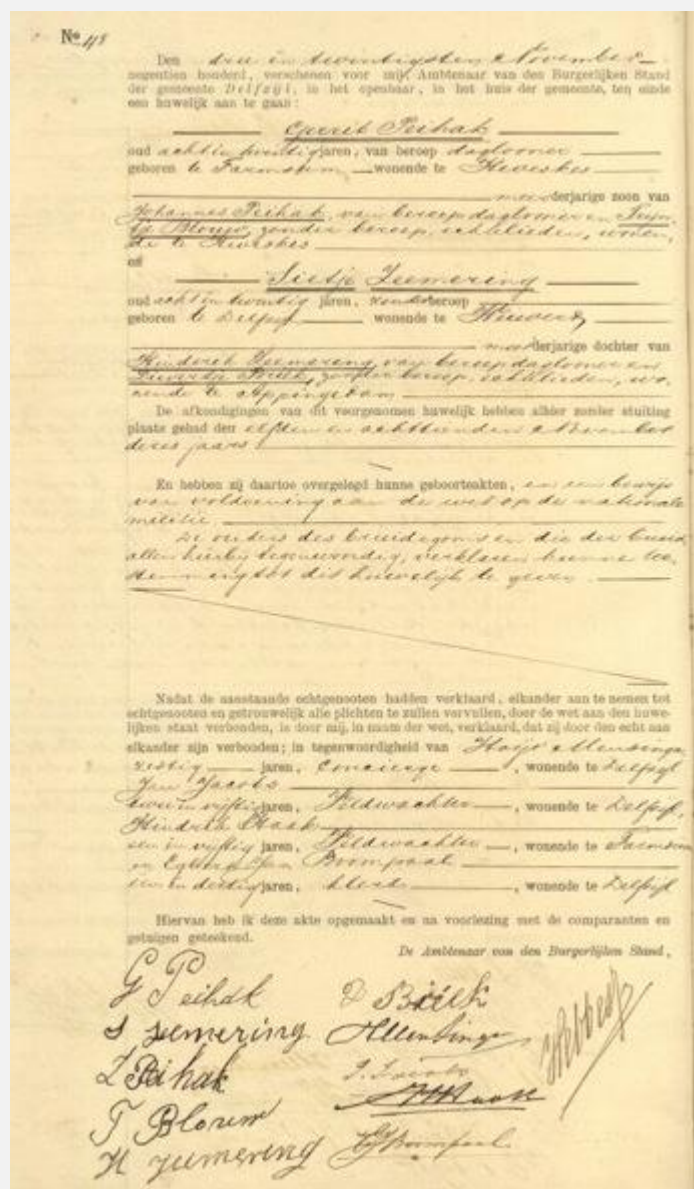 No 48
Den drie en twintigsten November
negentien honderd, verschenen voor mij, Ambtenaar van den Burgerlijken Stand
der gemeente Delfzijl, in het openbaar, in het huis der gemeente, ten einde
een huwelijk aan te gaan:
Gerrit Peihak
oud acht en twintig jaren, van beroep daglooner
geboren te Farmsum wonende te Heveskes
meerderjarige zoon van
Johannes Peihak, van beroep daglooner en Trijn-
tje Blouw, zonder beroep, echtelieden, wonen-
de te Heveskes
en
Sietje Zeemering
oud acht en twintig jaren, zonder beroep
geboren te Delfzijl wonende te
meerderjarige dochter van
Hinderk Zeemering, van beroep daglooner en
zonder beroep, echtelieden, wo-
nende te Appingedam
De afkondigingen van dit voorgenomen huwelijk hebben alhier zonder stuiting
plaats gehad den elfden en achttienden November
dezes jaars
En hebben zij daartoe overgelegd hunne geboorteakten, en een bewijs
van voldoening aan de wet op de nationale
militie.
De ouders des bruidegoms en die der bruid
allen hierbij tegenwoordig, verklaren hunne toe-
stemming tot dit huwelijk te geven
Nadat de aanstaande echtgenooten hadden verklaard, elkander aan te nemen tot
echtgenooten en getrouwelijk alle plichten te zullen vervullen, door de wet aan den huwe-
lijken staat verbonden, is door mij, in naam der wet, verklaard, dat zij door den echt aan
elkander zijn verbonden; in tegenwoordigheid van Mensinga
zestig jaren, Concierge, wonende te Delfzijl
Jan Jacobs
twee en vijftig jaren, Veldwachter, wonende te Delfzijl,
Hindrik
een en vijftig jaren, Veldwachter, wonende te Farmsum
en Egbert Jan Boompaal
een en dertig jaren, klerk, wonende te Delfzijl
Hiervan heb ik deze akte opgemaakt en na voorlezing met de comparanten en
getuigen geteekend.
De Ambtenaar van den Burgerlijken Stand,
G Peihak
S Zeemering
Mensinga
Peihak
J. Jacobs
T Blouw
H Zeemering
EJBoompaal